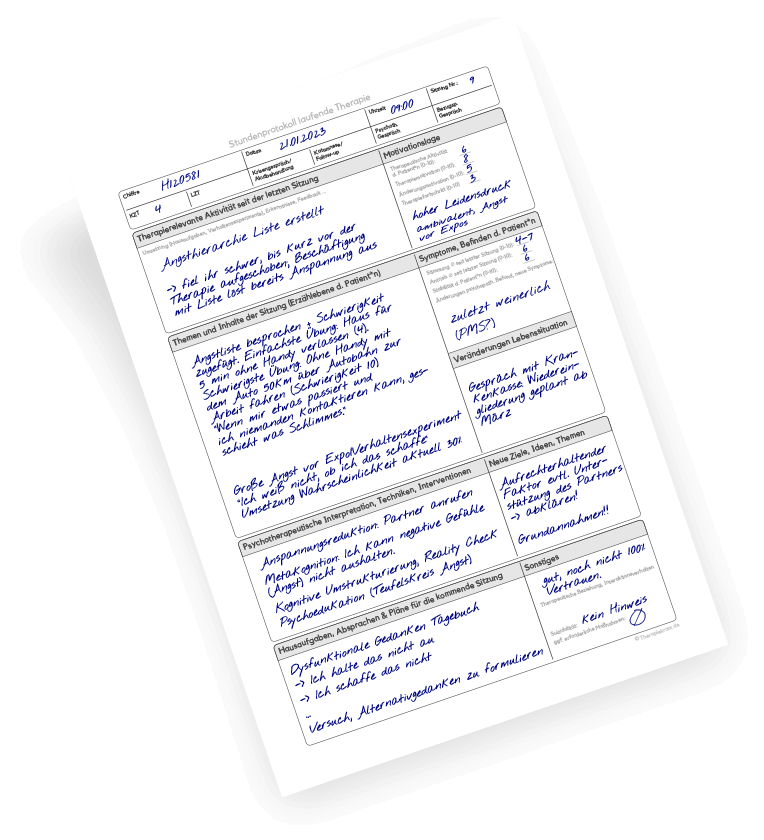 Stundenprotokoll laufende Therapie
Chiffre H120581
Datum 21.01.2023
Uhrzeit 09:00
Sitzung Nr.: 9
KZT 4
LZT
Krisengespräch/
Akutbehandlung
Katamnese/
Follow-up
Psychoth.
Gespräch
Bezugsp.
Gespräch
Therapierelevante Aktivität seit der letzten Sitzung
Umsetzung (Hausaufgaben, Verhaltensexperimente), Erkenntnisse, Feedback ...
Angsthierarchie Liste erstellt
-> fiel ihr schwer, bis kurz vor der
Therapie aufgeschoben, Beschäftigung
mit Liste löst bereits Anspannung aus
Motivationslage
Therapeutische Aktivität
d. Patient*in (0-10): 6
Therapiemotivation (0-10): 8
Änderungsmotivation (0-10): 5
Therapiefortschritt (0-10) 3
hoher Leidensdruck
ambivalent, Angst
vor Expos
Themen und Inhalte der Sitzung (Erzählebene d. Patient*in)
Angstliste besprochen + Schwierigkeit
zugefügt. Einfachste Übung: Haus für
5 min ohne Handy verlassen (4).
Schwierigste Übung: Ohne Handy mit
dem Auto 50km über Autobahn zur
Arbeit fahren (Schwierigkeit 10)
"Wenn mir etwas passiert und
ich niemanden kontaktieren kann, ges-
schieht was Schlimmes."
Große Angst vor Expo/Verhaltensexperiment
"Ich weiß nicht, ob ich das schaffe"
Umsetzung Wahrscheinlichkeit aktuell 30%
Symptome, Befinden d. Patient*n
Stimmung ∅ seit letzter Sitzung (0-10): 4-7
Antrieb ∅ seit letzter Sitzung (0-10): 6
Stabilität d. Patient*in (0-10): 6
Änderungen psychopath. Befund, neue Symptome
zuletzt weinerlich
(PMS?)
Veränderungen Lebenssituation
Gespräch mit Kran-
kenkasse. Wiederein-
gliederung geplant ab
März
Psychotherapeutische Interpretation, Techniken, Interventionen
Anspannungsreduktion: Partner anrufen
Metakognition: Ich kann negative Gefühle
(Angst) nicht aushalten.
Kognitive Umstrukturierung, Reality Check
Psychoedukation (Teufelskreis Angst)
Neue Ziele, Ideen, Themen
Aufrechterhaltender
Faktor evtl. Unter-
stützung des Partners
-> abklären!
Grundannahmen!!
Hausaufgaben, Absprachen & Pläne für die kommende Sitzung
Dysfunktionale Gedanken Tagebuch
-> Ich halte das nicht au
-> Ich schaffe das nicht
...
Versuch, Alternativgedanken zu formulieren
Sonstiges
gut, noch nicht 100%
Vertrauen.
Therapeutische Beziehung, Interaktionsverhalten
Suizidalität: Kein Hinweis
ggf. erforderliche Maßnahmen: ∅